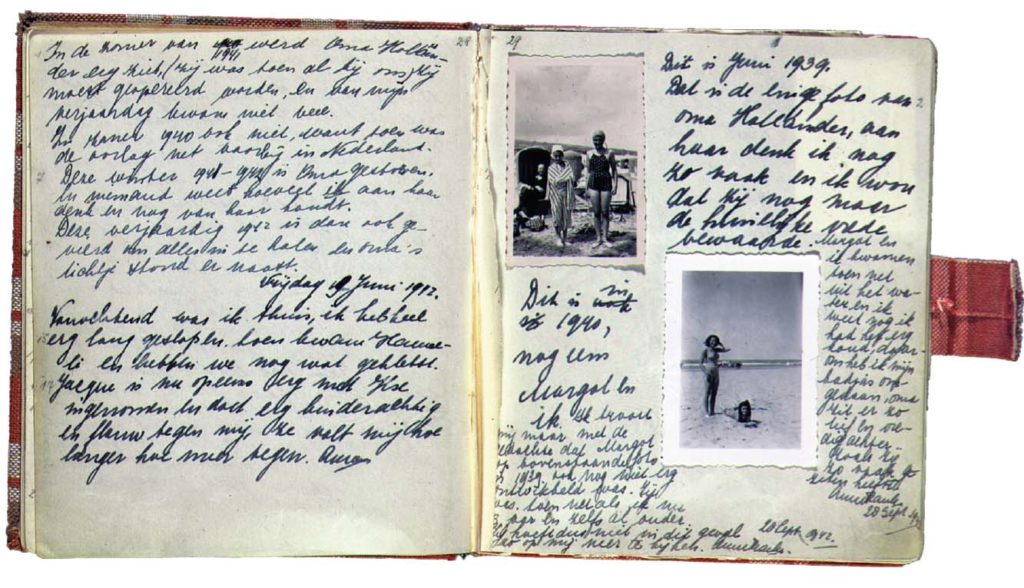 28
In de zomer van 1941 werd Oma Hollän-
der erg ziek, (zij was toen al bij ons) zij
moest geopereerd worden, en van mijn
verjaardag kwam niet veel.
In zomer 1940 ook niet, want toen was
de oorlog net voorbij in Nederland.
Deze winter 1941-1942 is Oma gestorven.
En niemand weet hoeveel ik aan haar
denk en nog van haar houdt.
Deze verjaardag 1942 is dan ook ge-
vierd om alles in te halen en oma's
lichtje stond er naast.
Vrijdag 19 Juni 1942.
Vanochtend was ik thuis, ik heb heel
erg lang geslapen, toen kwam Hanne-
li en hebben we nog wat gekletst.
Jacque is nu opeens erg met Ilse
ingenomen en doet erg kinderachtig
en flauw tegen mij, ze valt mij hoe
langer hoe meer tegen. Anne
29
Dit is Juni 1939.
Dat is de enige foto van
oma Hollander, aan
haar denk ik nog
zo vaak en ik wou
dat zij nog maar
de huiselijke vrede
bewaarde. Margot en
ik kwamen
toen net
uit het wa-
ter en ik
weet nog ik
had het erg
koud, daar-
om heb ik mijn
badjas
oma
zit er zo
lief en
achter.
zo vaak
Anne Frank.
28 Sept. 1942
Dit is in
1940,
nog eens
Margot en
ik. Ik troost
mij maar met de
gedachte dat Margot
op bovenstaande foto
in 1939 ook nog niet erg
ontwikkeld was. Zij
was toen net als ik nu
en zelfs al ouder
dus niet in dit geval
op mij neer te kijken. Anne Frank.
28 Sept. 1942.